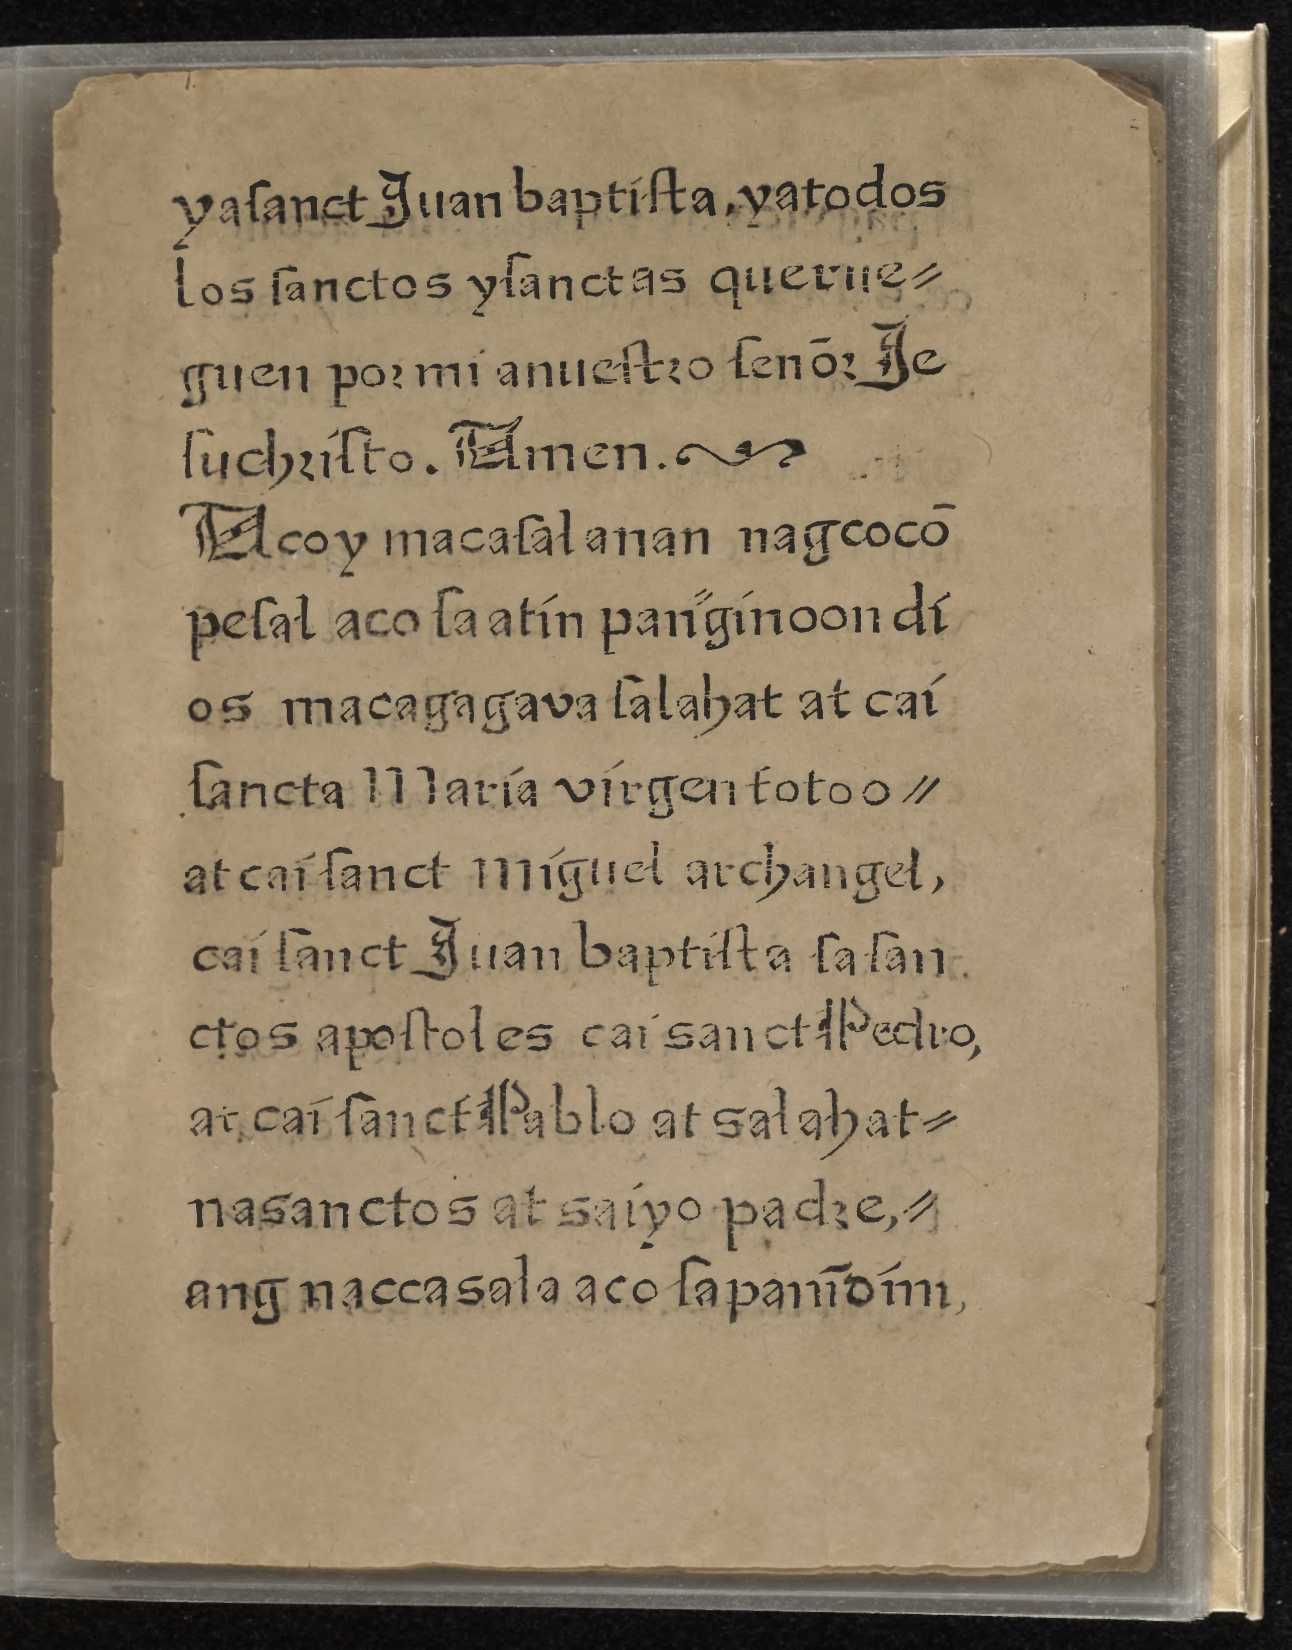 yasanct Juan baptista, yatodos
los sanctos ysanctas querue=
guen por mi anuestro senōr Je
suchristo. Amen.
Acoy macasalanan nagcocō
pesal aco sa atin pañginoon di
os macagagava salahat at cai
sancta Maria virgen totoo=
at cai sanct Miguel archangel,
cai sanct Juan baptista sa san
ctos apostoles cai sanct Pedro,
at cai sanct Pablo at salahat=
nasanctos at saiyo padre,=
ang naccasala aco sapanīdim,